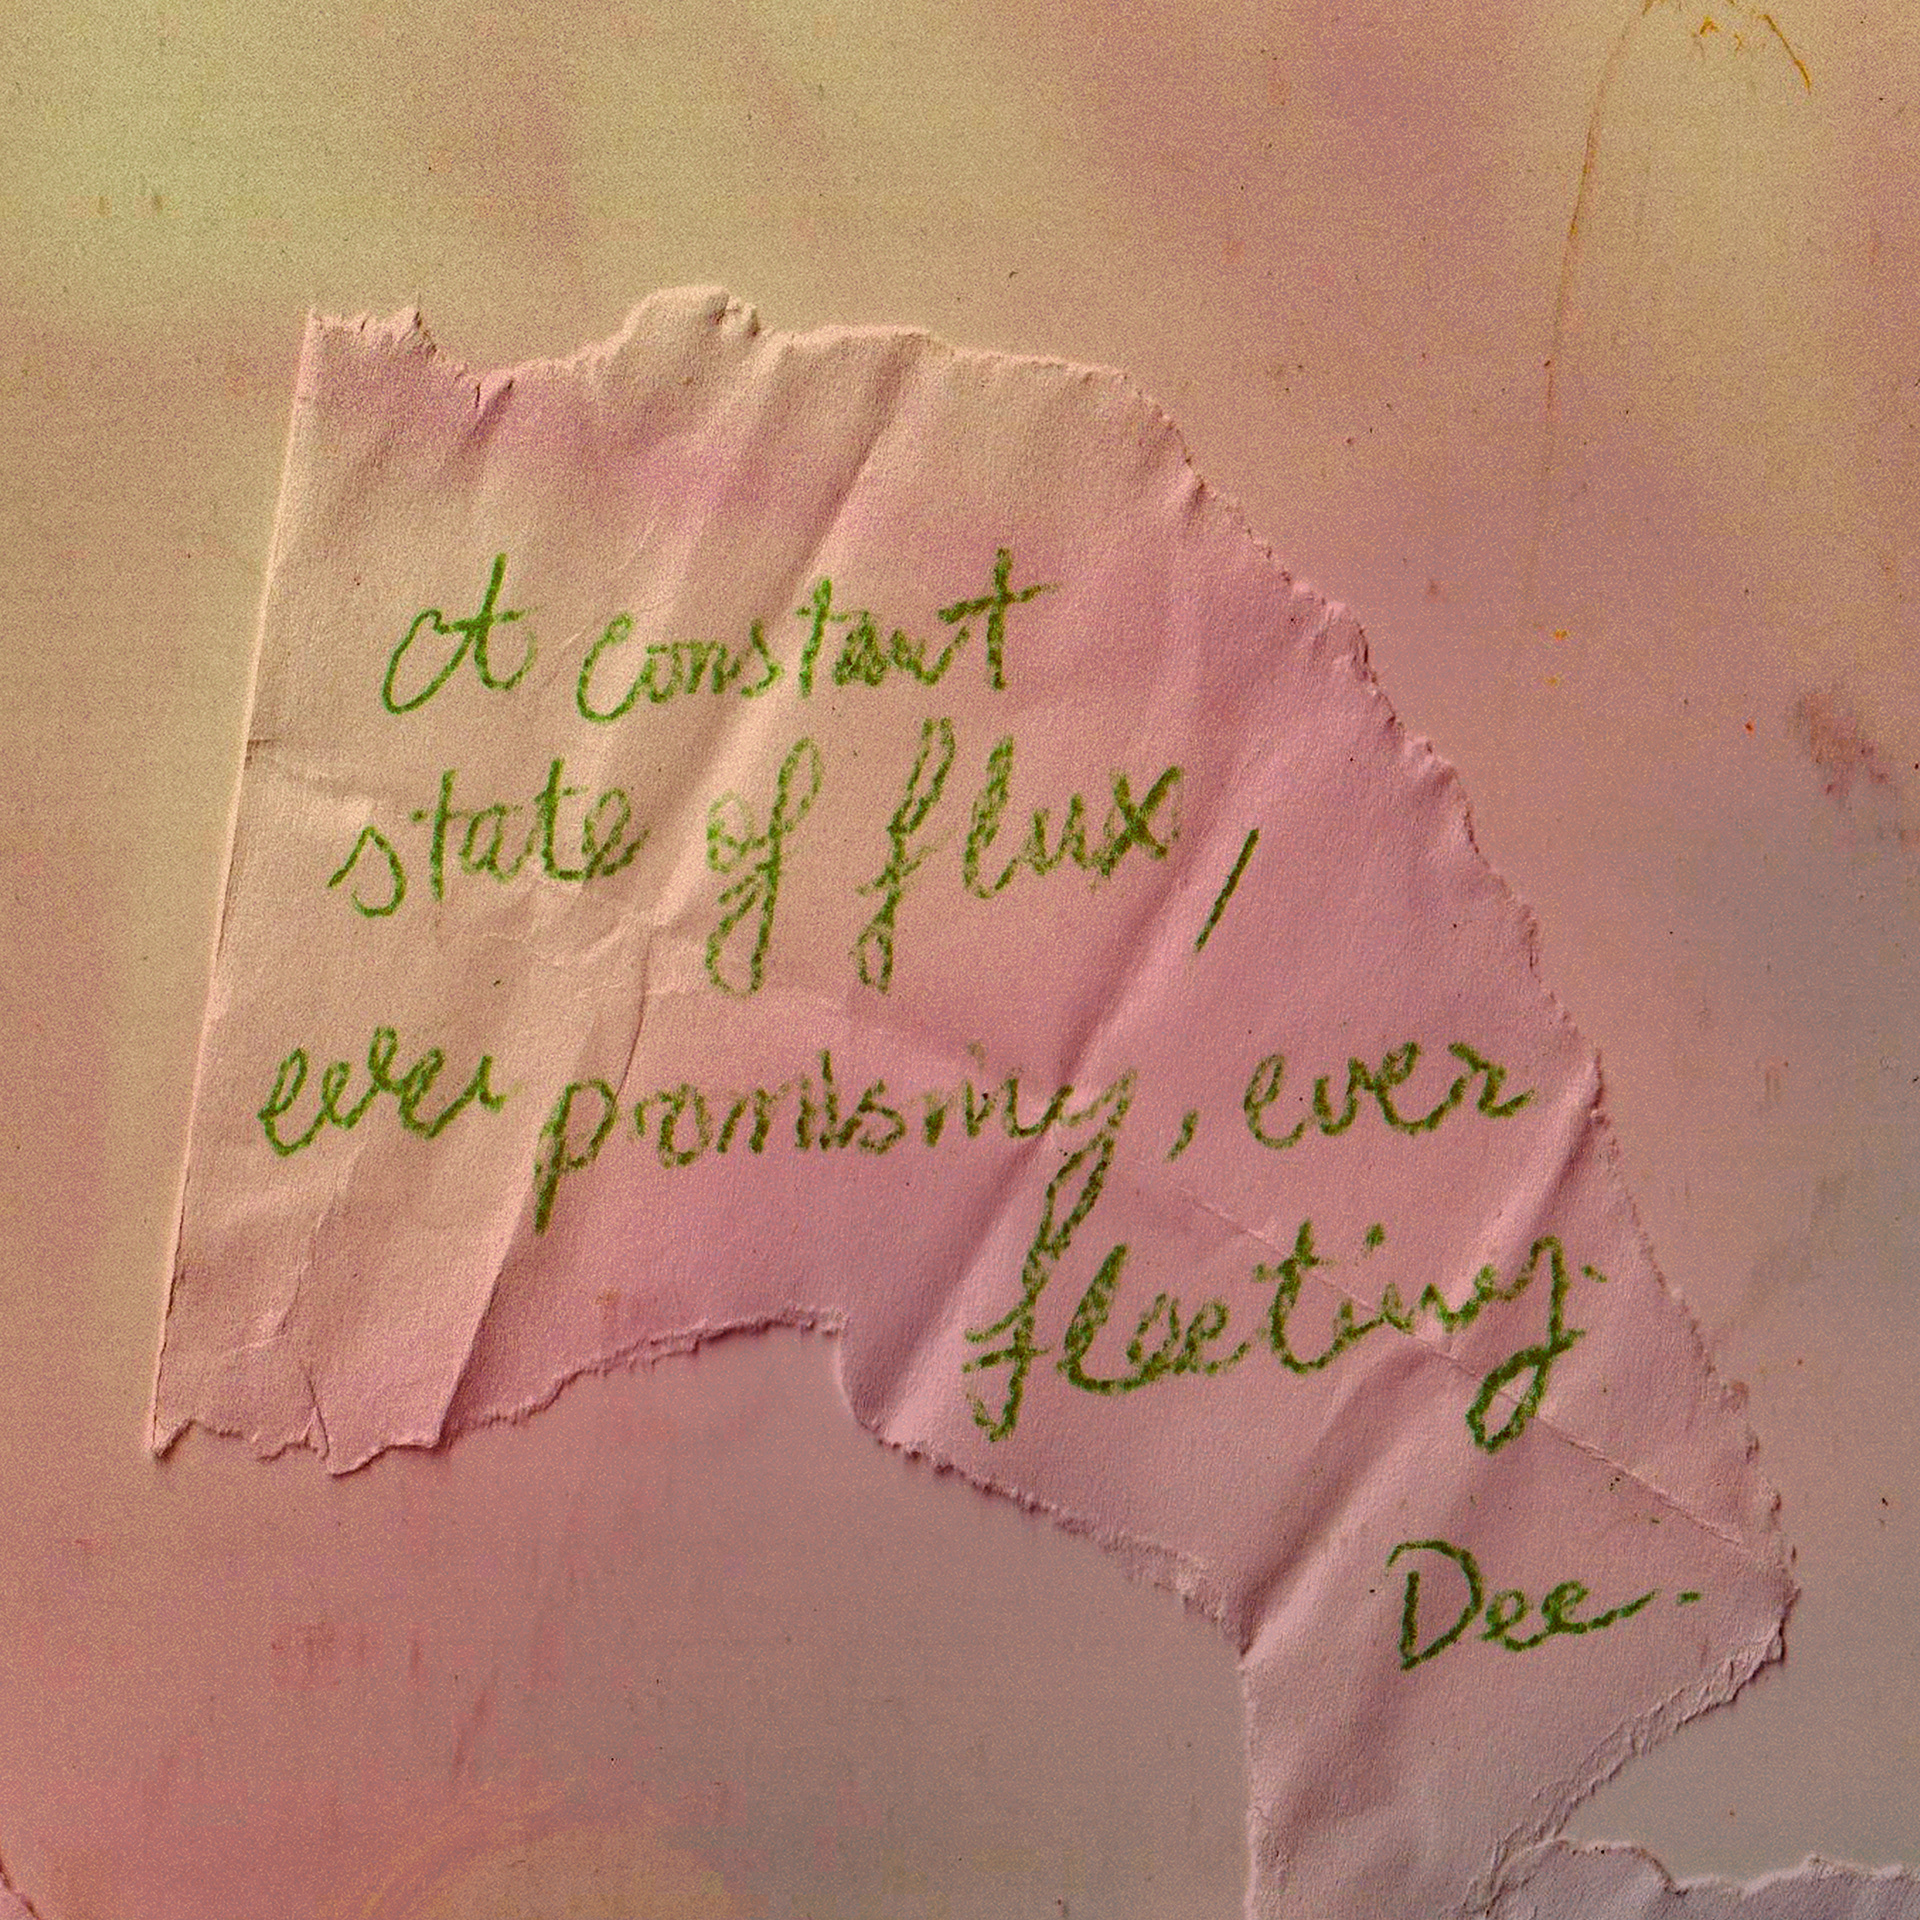 A constant
state of flux,
ever promising, ever
fleeting.
Dee.